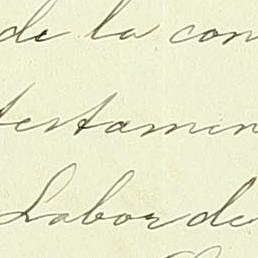 de la con
testamen
Labor de